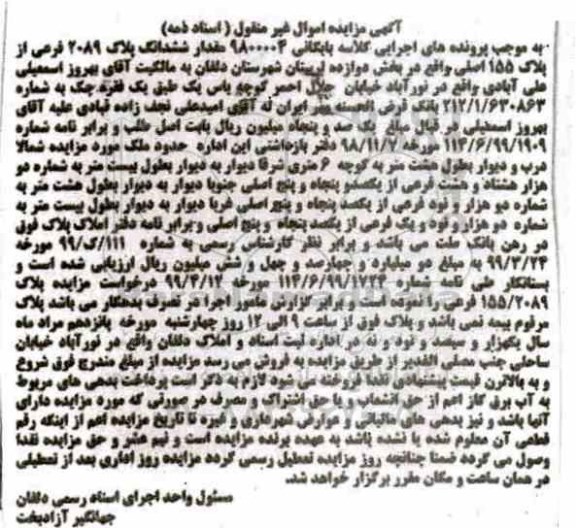 آگهی مزایده اموال غیر منقول ( اسناد ذمه)
به موجب پرونده های اجرایی کلاسه بایگانی ۹۸۰۰۰۰۴ مقدار ششدانگ پلاک ۲۰۸۹ فرعی از
پلاک ۱۵۵ اصلی واقع در بخش دوازده لرستان شهرستان دلفان به مالکیت آقای بهروز اسمعیلی
علی آبادی واقع در نورآباد خیابان جلال احمر کوچه یاس یک طبق یک فقره چک به شماره
۲۱۲/۱/۶۳۰۸۶۳ بانک قرض الحسنه مهر ایران له آقای امیدعلی نجف زاده قبادی علیه آقای
بهروز اسمعیلی در قبال مبلغ یک صد و پنجاه میلیون ریال بابت اصل طلب و برابر نامه شماره
۱۱۴/۶/۹۹/۱۹۰۹ مورخه ۹۸/۱۱/۷ دفتر بازداشتی این اداره حدود ملک مورد مزایده شمالا
درب و دیوار بطول هشت متر به کوچه ۶ متری شرقا دیوار به دیوار بطول بیست متر به شماره دو
هزار هشتاد و هشت فرعی از یکصدو پنجاه و پنج اصلی جنوبا دیوار به دیوار بطول هشت متر به
شماره دو هزار و نود فرعی از یکصد پنجاه و پنج اصلی غربا دیوار به دیوار بطول بیست متر به
شماره دو هزار و نود و یک فرعی از یکصد پنجاه و پنج اصلی و برابر نامه دفتر املاک پلاک فوق
در رهن بانک ملت می باشد و برابر نظر کارشناس رسمی به شماره ۱۱۱/ک/۹۹ مورخه
۹۹/۳/۲۴ به مبلغ دو میلیارد و چهارصد و چهل و شش میلیون ریال ارزیابی شده است و
بستانکار طی نامه شماره ۱۱۴/۶/۹۹/۱۷۲۴ مورخه ۹۹/۴/۱۲ درخواست مزایده پلاک
۱۵۵/۲۰۸۹ فرعی را نموده است و برابر گزارش مامور اجرا در تصرف بدهکار می باشد پلاک
مرقوم بیمه نمی باشد و پلاک فوق از ساعت ۹ الی ۱۲ روز چهارشنبه مورخه پانزدهم مراد ماه
سال یکهزار و سیصد و نود و نه در اداره ثبت اسناد و املاک دلفان واقع در نورآباد خیابان
ساحلی جنب مصلی الغدیر از طریق مزایده به فروش می رسد مزایده از مبلغ مندرج فوق شروع
و به بالاترن قیمت پیشنهادی نقدا فروخته می شود لازم به ذکر است پرداخت بدهی های مربوط
به آب برق گاز اعم از حق انشعاب و یا حق اشتراک و مصرف در صورتی که مورد مزایده دارای
آنها باشد و نیز بدهی های مالیاتی و عوارض شهرداری و غیره تا تاریخ مزایده اعم از اینکه رقم
قطعی آن معلوم شده یا نشده باشد به عهده برنده مزایده است و نیم عشر و حق مزایده نقدا
وصول می گردد ضمنا چنانچه روز مزایده تعطیل رسمی گردد مزایده روز اداری بعد از تعطیلی
در همان ساعت و مکان مقرر برگزار خواهد شد.
مسئول واحد اجرای اسناد رسمی دلفان
جهانگیر آزادبخت